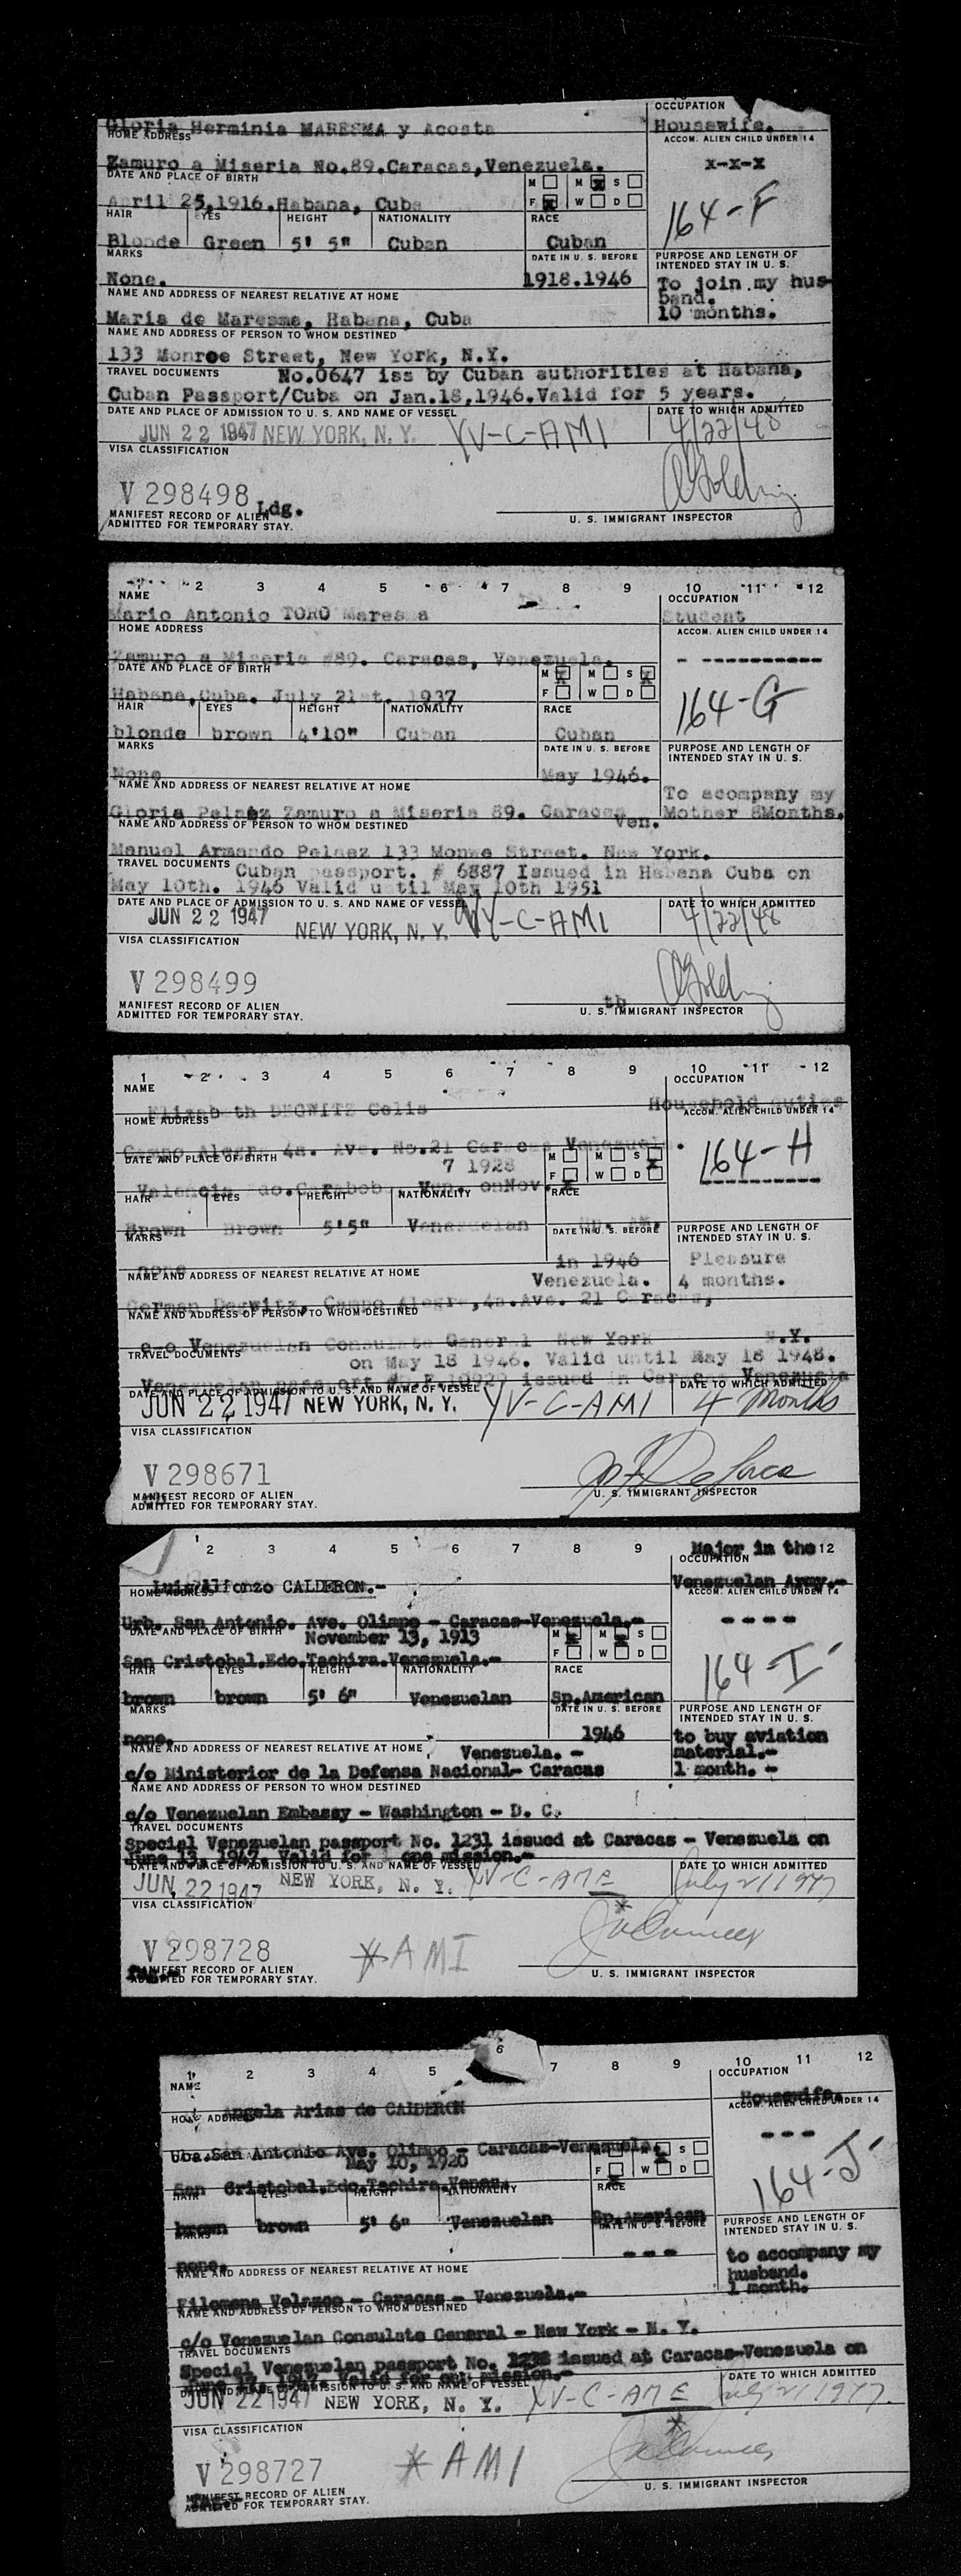 OCCUPATION
Gloria Herminia MARESMA y Acosta Housewife.
HOME ADDRESS ACCOM. ALIEN CHILD UNDER 14
Zamuro a Miseria No.89.Caracas,Venezuela. X-X-X
DATE AND PLACE OF BIRTH M M X S
April 25,1916.Habana, Cuba F X W D 164-F
HAIR EYES HEIGHT NATIONALITY RACE
Blonde Green 5' 5" Cuban Cuban
MARKS DATE IN U. S. BEFORE PURPOSE AND LENGTH OF INTENDED STAY IN U. S.
None. 1918.1946 To join my hus-
NAME AND ADDRESS OF NEAREST RELATIVE AT HOME band.
Maria de Maresma, Habana, Cuba 10 months.
NAME AND ADDRESS OF PERSON TO WHOM DESTINED
133 Monroe Street, New York, N.Y.
TRAVEL DOCUMENTS No.0647 iss by Cuban authorities at Habana,
Cuban Passport/Cuba on Jan.18,1946.Valid for 5 years.
DATE AND PLACE OF ADMISSION TO U. S. AND NAME OF VESSEL DATE TO WHICH ADMITTED
JUN 22 1947 NEW YORK, N. Y. YV-C-AMI 4/22/48
VISA CLASSIFICATION
V 298498 Ldg.
MANIFEST RECORD OF ALIEN
ADMITTED FOR TEMPORARY STAY. U. S. IMMIGRANT INSPECTOR
2 3 4 5 6 7 8 9 10 11 12
NAME OCCUPATION
Mario Antonio TORO Maresma Student
HOME ADDRESS ACCOM. ALIEN CHILD UNDER 14
Zamuro a Miseria #89. Caracas, Venezuela. - ----------
DATE AND PLACE OF BIRTH M X M S X
Habana,Cuba. July 21st. 1937 F W D 164-G
HAIR EYES HEIGHT NATIONALITY RACE
blonde brown 4'10" Cuban Cuban
MARKS DATE IN U. S. BEFORE PURPOSE AND LENGTH OF INTENDED STAY IN U. S.
None May 1946.
NAME AND ADDRESS OF NEAREST RELATIVE AT HOME To acompany my
Gloria Pelaez Zamuro a Miseria 89. Caracas Ven. Mother 8Months.
NAME AND ADDRESS OF PERSON TO WHOM DESTINED
Manuel Armando Pelaez 133 Monwe Street. New York.
TRAVEL DOCUMENTS Cuban passport. # 6887 Issued in Habana Cuba on
May 10th. 1946 Valid until May 10th 1951
DATE AND PLACE OF ADMISSION TO U. S. AND NAME OF VESSEL DATE TO WHICH ADMITTED
JUN 22 1947 NEW YORK, N. Y. YV-C-AMI 4/22/48
VISA CLASSIFICATION
V 298499
MANIFEST RECORD OF ALIEN
ADMITTED FOR TEMPORARY STAY. U. S. IMMIGRANT INSPECTOR
1 2 3 4 5 6 7 8 9 10 11 12
NAME OCCUPATION
Elizabeth DEGWITZ Celis Household duties
HOME ADDRESS ACCOM. ALIEN CHILD UNDER 14
Campo Alegre 4a. Ave. No.21 Caracas Venezuela. 164-H
DATE AND PLACE OF BIRTH 7 1928 M M S X
Valencia Edo.Carabobo Ven. onNov. F W D
HAIR EYES HEIGHT NATIONALITY RACE
Brown Brown 5'5" Venezuelan
MARKS DATE IN U. S. BEFORE PURPOSE AND LENGTH OF INTENDED STAY IN U. S.
none in 1946 Pleasure
NAME AND ADDRESS OF NEAREST RELATIVE AT HOME Venezuela. 4 months.
German Degwitz, Campo Alegre,4a.Ave. 21 Caracas,
NAME AND ADDRESS OF PERSON TO WHOM DESTINED
c-o Venezuelan Consulate General New York N.Y.
TRAVEL DOCUMENTS on May 18 1946. Valid until May 18 1948.
Venezuelan passport issued in Caracas Venezuela
DATE AND PLACE OF ADMISSION TO U. S. AND NAME OF VESSEL DATE TO WHICH ADMITTED
JUN 22 1947 NEW YORK, N. Y. YV-C-AMI 4 Months
VISA CLASSIFICATION
V 298671
MANIFEST RECORD OF ALIEN
ADMITTED FOR TEMPORARY STAY. U. S. IMMIGRANT INSPECTOR
2 3 4 5 6 7 8 9 Major in the 12
OCCUPATION
Luis Alfonzo CALDERON.- Venezuelan Army.-
HOME ADDRESS ACCOM. ALIEN CHILD UNDER 14
Urb. San Antonio. Ave. Olimpo - Caracas-Venezuela.- ----
DATE AND PLACE OF BIRTH November 13, 1913 M X M X S
San Cristobal.Edo.Tachira.Venezuela.- F W D 164-I
HAIR EYES HEIGHT NATIONALITY RACE
brown brown 5' 6" Venezuelan Sp.American
MARKS DATE IN U. S. BEFORE PURPOSE AND LENGTH OF INTENDED STAY IN U. S.
none. 1946 to buy aviation
NAME AND ADDRESS OF NEAREST RELATIVE AT HOME Venezuela. - material.-
c/o Ministerior de la Defensa Nacional- Caracas 1 month. -
NAME AND ADDRESS OF PERSON TO WHOM DESTINED
c/o Venezuelan Embassy - Washington - D. C.
TRAVEL DOCUMENTS
Special Venezuelan passport No. 1231 issued at Caracas - Venezuela on
June 13, 1947. Valid for one mission.-
DATE AND PLACE OF ADMISSION TO U. S. AND NAME OF VESSEL DATE TO WHICH ADMITTED
JUN 22 1947 NEW YORK, N. Y. YV-C-AME July 21 1947
VISA CLASSIFICATION *
V 298728 * AMI
MANIFEST RECORD OF ALIEN
ADMITTED FOR TEMPORARY STAY. U. S. IMMIGRANT INSPECTOR
1 2 3 4 5 6 7 8 9 10 11 12
NAME OCCUPATION
Angela Arias de CALDERON Housewife.
HOME ADDRESS ACCOM. ALIEN CHILD UNDER 14
Uba.San Antonio Ave. Olimpo - Caracas-Venezuela. ---
May 10, 1920 M X S
San Cristobal.Edo.Tachira.Venez. F X W D 164-J
HAIR EYES HEIGHT NATIONALITY RACE
brown brown 5' 6" Venezuelan Sp.American
MARKS DATE IN U. S. BEFORE PURPOSE AND LENGTH OF INTENDED STAY IN U. S.
none. --- to accompany my
NAME AND ADDRESS OF NEAREST RELATIVE AT HOME husband.
Filomena Velazco - Caracas - Venezuela.- 1 month.
NAME AND ADDRESS OF PERSON TO WHOM DESTINED
c/o Venezuelan Consulate General - New York - N. Y.
TRAVEL DOCUMENTS
Special Venezuelan passport No. issued at Caracas-Venezuela on
1947 Valid for one mission.-
DATE AND PLACE OF ADMISSION TO U. S. AND NAME OF VESSEL DATE TO WHICH ADMITTED
JUN 22 1947 NEW YORK, N. Y. YV-C-AME July 21 1947.
VISA CLASSIFICATION *
V 298727 * AMI
MANIFEST RECORD OF ALIEN
ADMITTED FOR TEMPORARY STAY. U. S. IMMIGRANT INSPECTOR